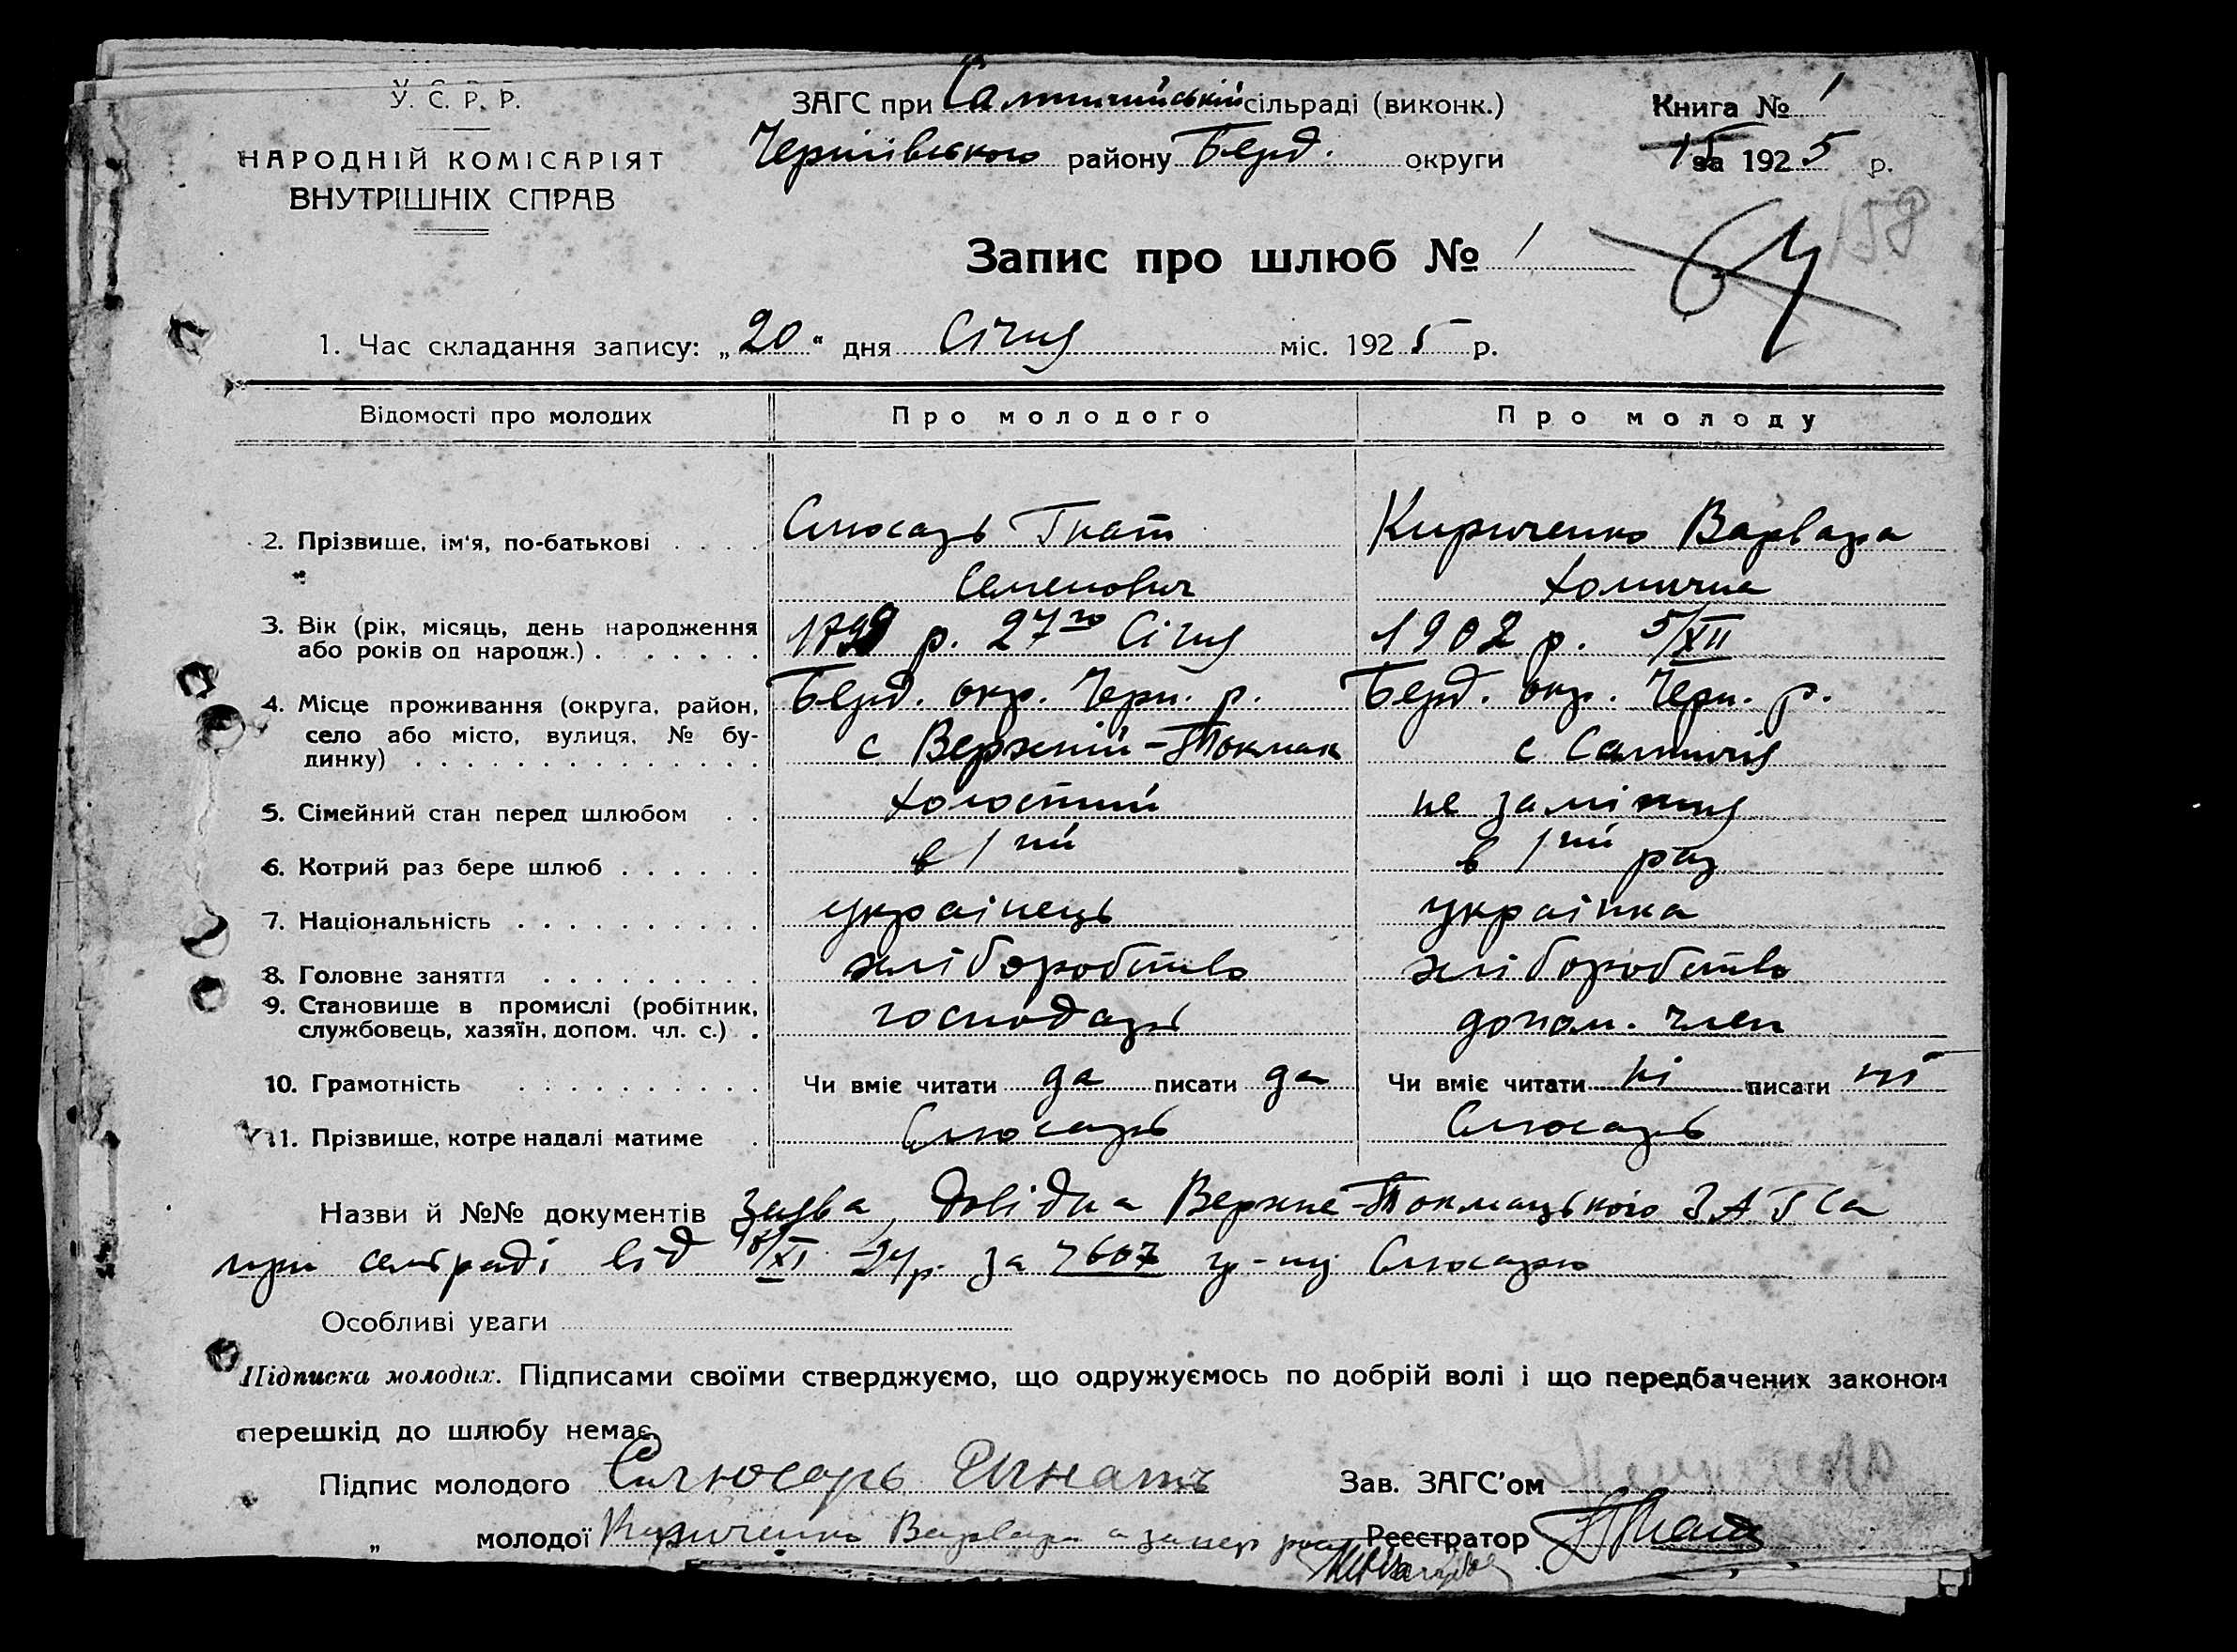 У. С. Р. Р.
НАРОДНІЙ КОМІСАРІЯТ
ВНУТРІШНІХ СПРАВ
ЗАГС при Салтичийській сільраді (виконк.)
Чернігівського району Берд. округи
Книга № 1
за 1925 р.
159
64
Запис про шлюб № 1
1. Час складання запису: „20“ дня Січня міс. 1925 р.
Відомості про молодих Про молодого Про молоду
2. Прізвище, ім'я, по-батькові . . . . Слюсарь Гнат Кириченко Варвара
Семенович Хомична
3. Вік (рік, місяць, день народження
або років од народж.) . . . . . . 1799 р. 27го Січня 1902 р. 5/XII
4. Місце проживання (округа, район, Берд. окр. Черн. р. Берд. окр. Черн. р.
село або місто, вулиця, № бу-
динку) . . . . . . . . . . . . . . с Верхній-Токмак с Салтичія
5. Сімейний стан перед шлюбом . . холостий не заміжня
6. Котрий раз бере шлюб . . . . . . в 1ий в 1ий раз
7. Національність . . . . . . . . . . українець українка
8. Головне заняття . . . . . . . . . хліборобство хліборобство
9. Становище в промислі (робітник,
службовець, хазяїн, допом. чл. с.) . господарь допом. член
10. Грамотність . . . . . . . . . . Чи вміє читати да писати да Чи вміє читати ні писати ні
11. Прізвище, котре надалі матиме . Слюсарь Слюсарь
Назви й №№ документів Заява, довідка Верхне-Токмацького ЗАГСа
при сельраді від /XI 24р. за 2607 гр-ну Слюсарю
Особливі уваги
Підписка молодих. Підписами своїми стверджуємо, що одружуємось по добрій волі і що передбачених законом
перешкід до шлюбу немає.
Підпис молодого Слюсарь Игнатъ Зав. ЗАГС'ом
„ молодої Кириченко Варвара а за неї Реєстратор